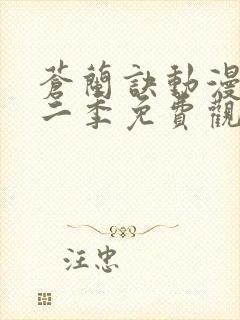 蒼蘭訣動漫
二季免費觀
汪忠